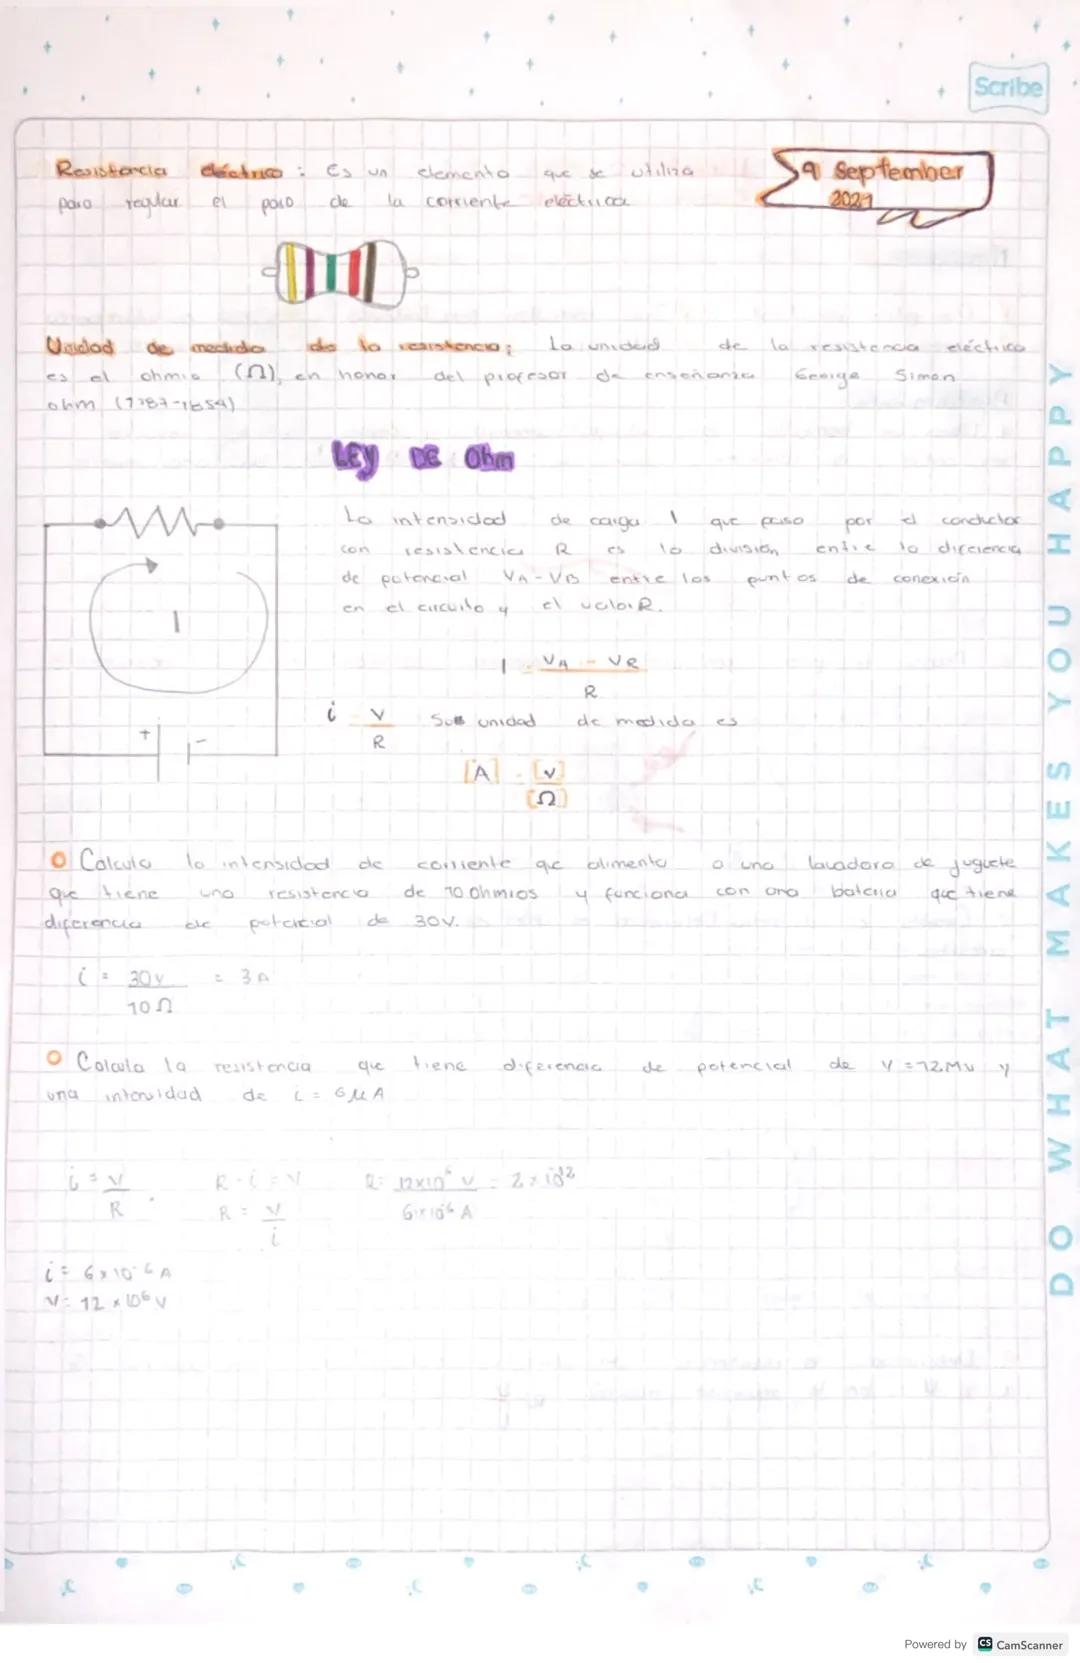 Scribe
9 September
2021
Resistencia eléctrica : Es un elemento que se utiliza
para regular el paso de la corriente eléctrica
Unidad de medida de la resistencia: La unidad de la resistencia eléctrica
es el ohmio (Ω), en honor del profesor de enseñanza George Simon
ohm (1787-1854)
LEY DE Ohm
La intensidad de carga I que paso por el conductor
con resistencia R es la división entre la diferencia
de potencial VA - VB entre los puntos de conexión
en el circuito y el valor R.
I
+ -
I = VA - VR
R
i = V
R
unidad de medida es
[A] = [V]
[Ω]
Calcula la intensidad de corriente qe alimenta a una lavadora de juguete
que tiene una resistencia de 10 Ohmios y funciona con una bateria que tiene
diferencia de potencial de 30V.
i = 30V = 3A
10Ω
Calcula la resistencia que tiene diferencia de potencial de V = 12Mv y
una intensidad de i = 6 μA
i = V
R
R · i = V
R = V
i
R = 12x10⁶ V = 2 x 10¹²
6x10⁻⁶ A
i = 6 x 10⁻⁶ A
V = 12 x 10⁶ V
DO WHAT MAKES YOU HAPPY
Powered by CS CamScanner